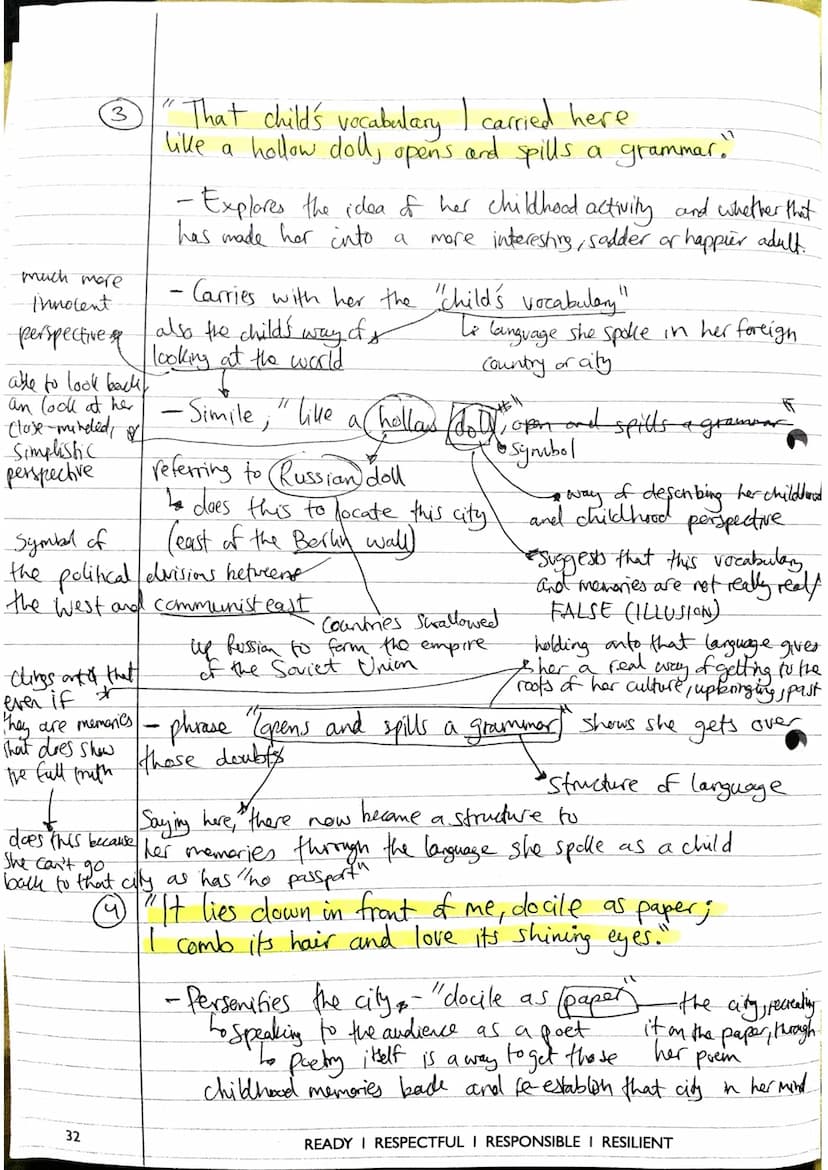 3
"That child's vocabulary I carried here
like a hollow doll, opens and spills a grammar."
- Explores the idea of her childhood activity and whether that
has made her into a more interesting, sadder or happier adult.
much more
innocent
perspective
- Carries with her the "child's vocabulary"
also the child's way of
looking at the world
language she spoke in her foreign
country or city
able to look back
an look at her
close-minded,
simplistic
perspective
- Simile, "like a hollow doll", open and spills a grammar"
symbol
referring to Russian doll
does this to locate this city
(east of the Berlin wall)
way of describing her childhood
and childhood perspective
Symbol of
the political divisions between
the west and communist east
suggests that this vocabulary
and memories are not really real/
FALSE (ILLUSION)
countries swallowed
up Russian to form the empire
of the Soviet Union
holding onto that language gives
her a real way of getting to the
roots of her culture, upbringing, past
clings onto that
even if
they are memories
that does show
the full truth
- phrase "opens and spills a grammar" shows she gets over
those doubts
structure of language
Saying here, "there now became a structure to
her memories through the language she spoke as a child
does this because
she can't go
back to that city as has "no passport"
4
"It lies down in front of me, docile as paper;
I comb its hair and love its shining eyes."
- Personifies the city - "docile as paper"
the city, recreating
it on the paper, through
her poem
speaking to the audience as a poet
poetry itself is a way to get those
childhood memories back and re-establish that city in her mind
32
READY I RESPECTFUL I RESPONSIBLE I RESILIENT